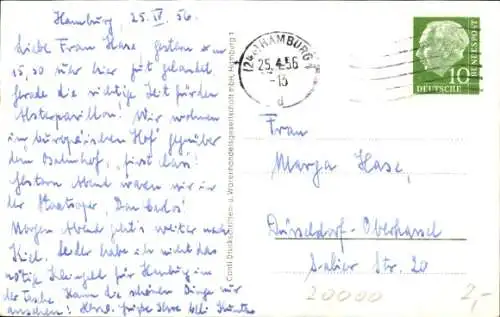 Hamburg, 25. IV. 56.
Liebe Frau Hase, gestern um
15,30 Uhr hier gut gelandet.
Gerade die richtige Zeit für den
Alsterpavillon! Wir wohnen
im "Europäischen Hof" gegenüber
dem Bahnhof, "first class"!
Gestern Abend waren wir in
der Staatsoper, "Don Carlos"
Morgen Abend geht's weiter nach
Kiel. Leider habe ich nicht das
nötige Kleingeld für Hamburg in
der Tasche. Kann die schönen Dinge nur
ansehen! Herzl. Grüße Ihre
Conti Druckschriften- u. Warenhandelsgesellschaft mbH, Hamburg 1
(24a) HAMBURG
25.4.56
-13
d
10
DEUTSCHE
BUNDESPOST
Frau
Marga Hase,
Düsseldorf-Oberkassel
Salier Str. 20
20000
2,-